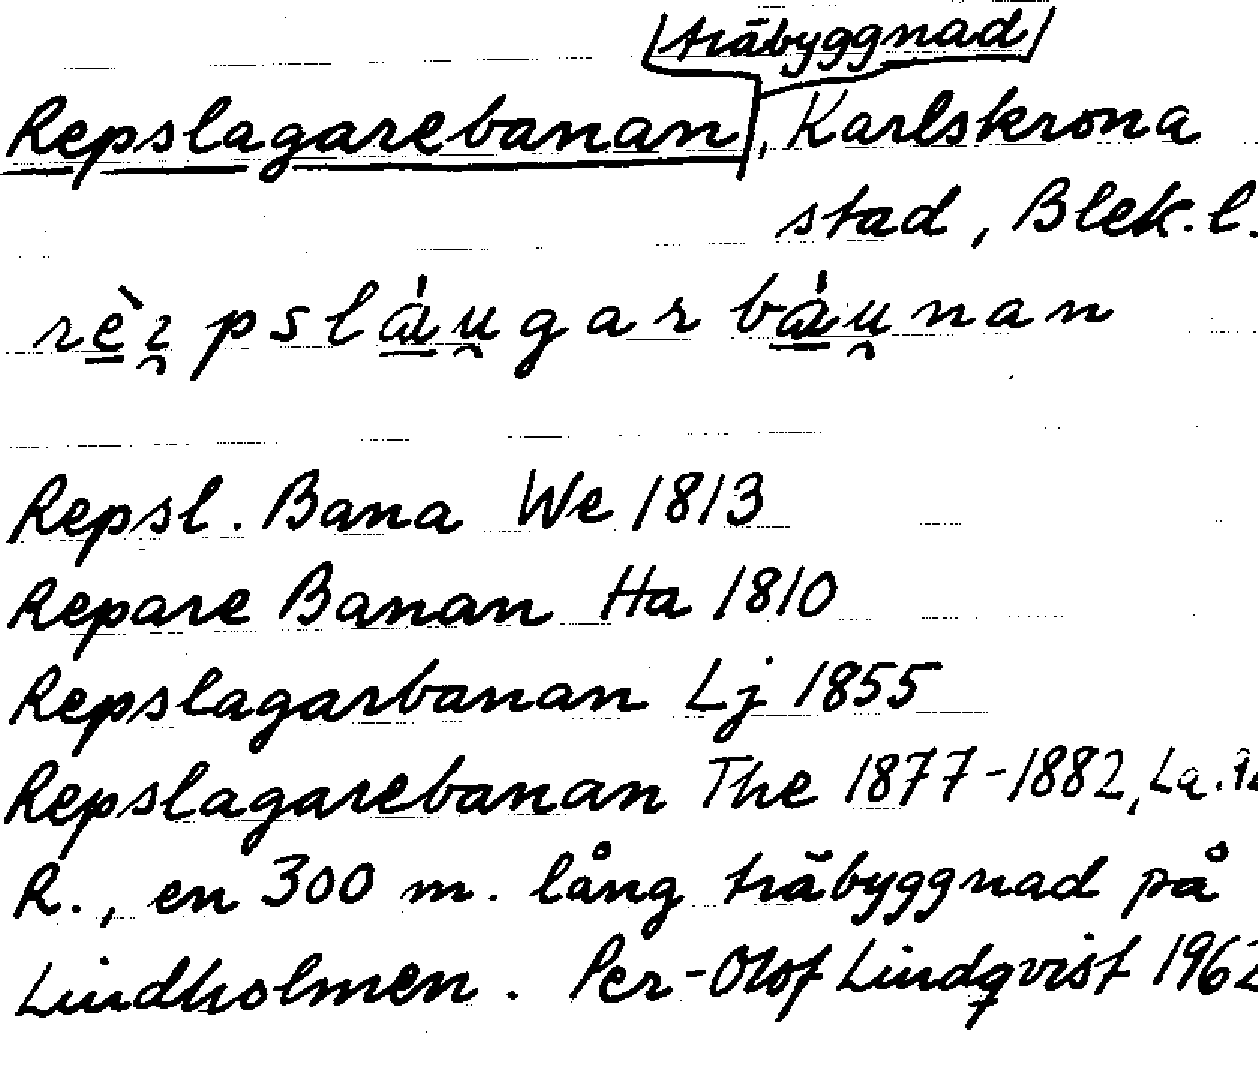 träbyggnad
Repslagarebanan, Karlskrona
stad, Blek. l.
Repsl. Bana We 1813
Repare Banan Ha 1810
Repslagarbanan Lj 1855
Repslagarebanan The 1877-1882, La.
R., en 300 m. lång träbyggnad på
Lindholmen. Per-Olof Lindqvist 1962